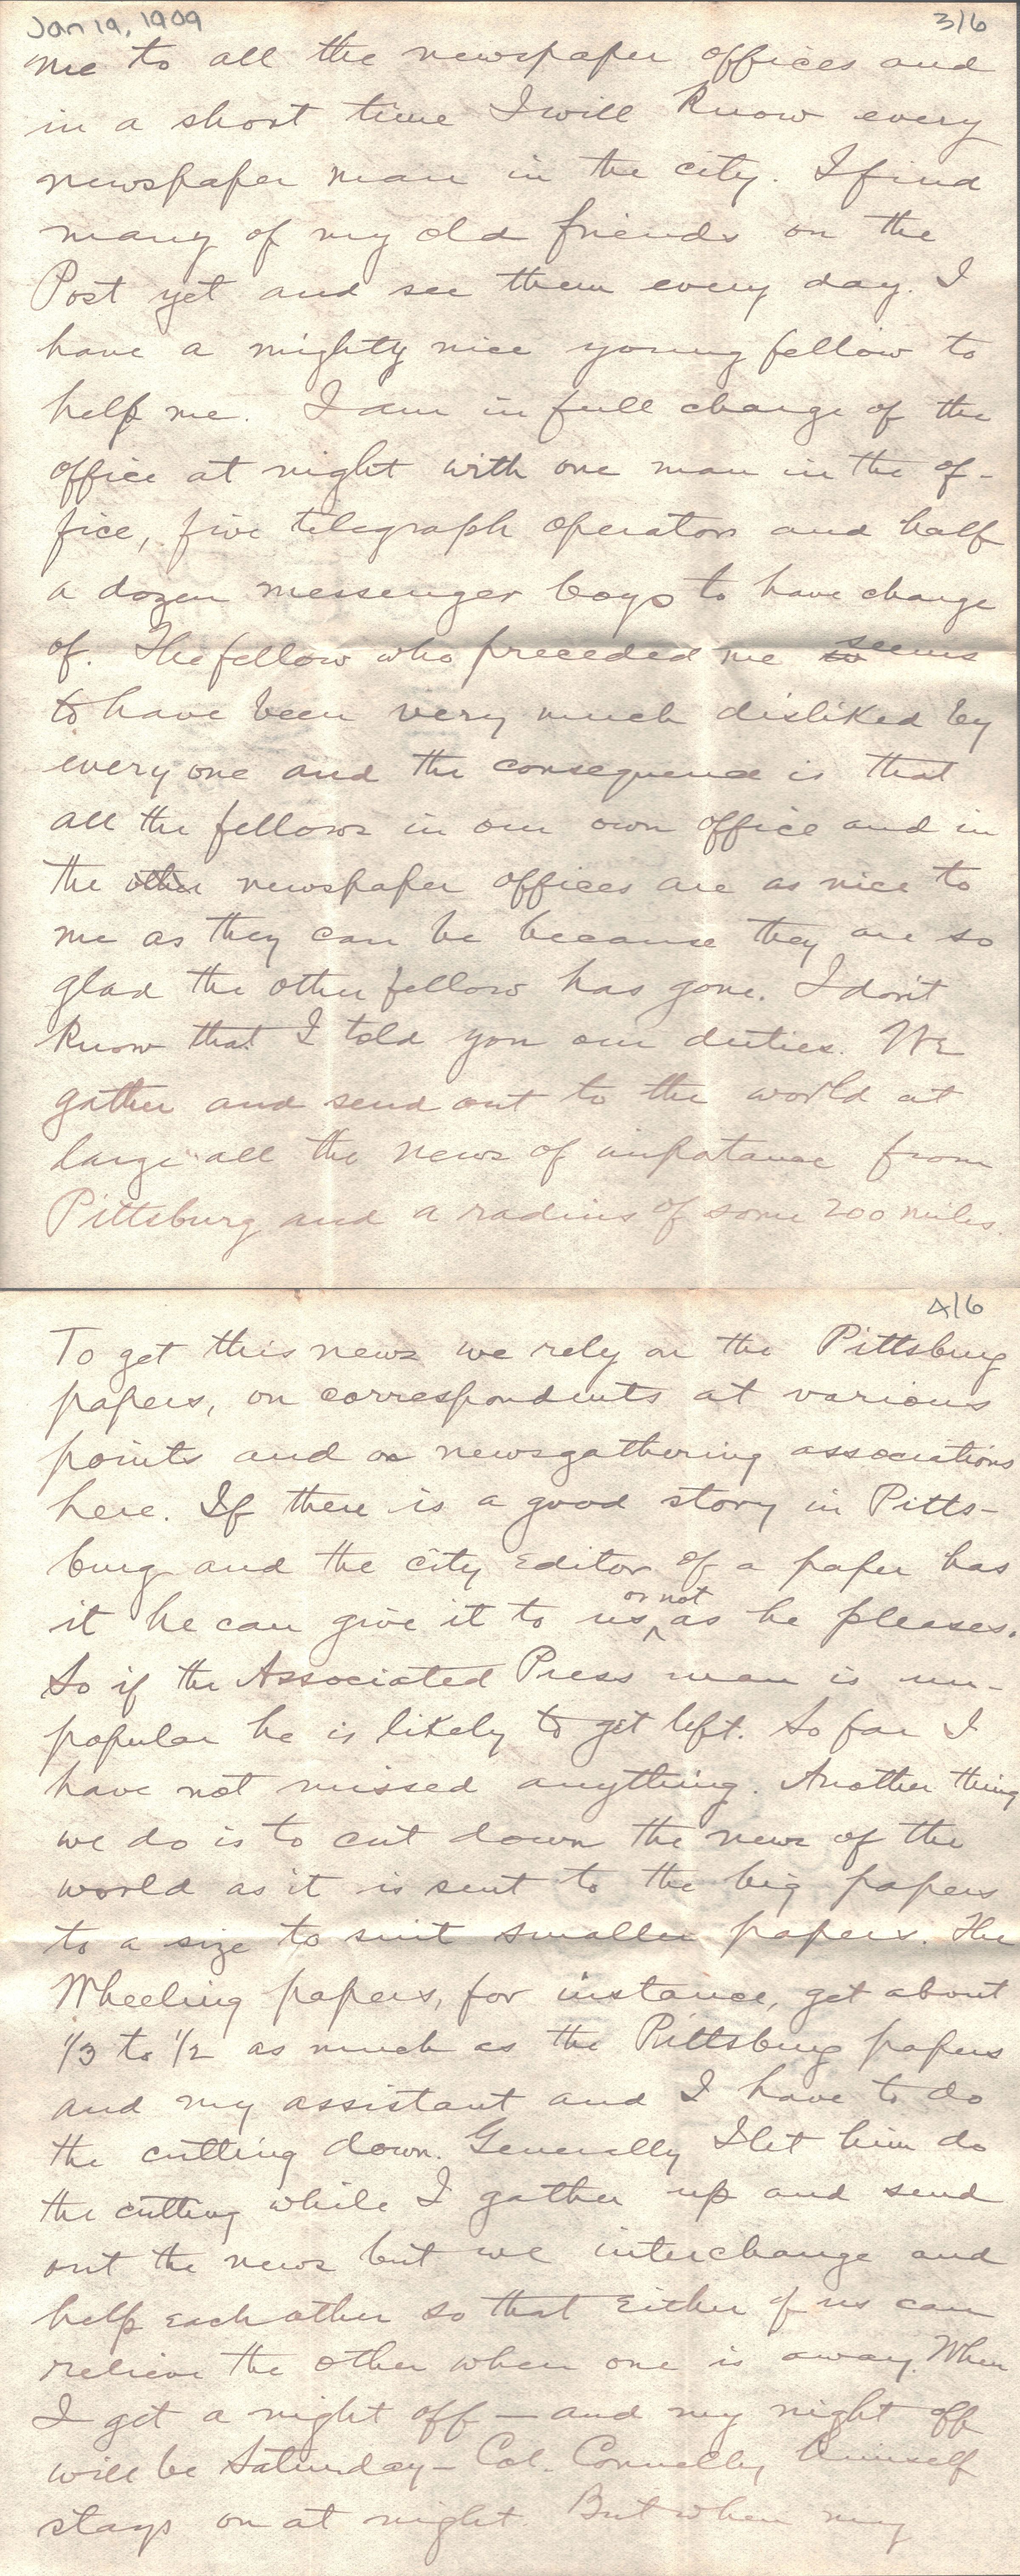 Jan 19, 1909
3/6
me to all the newspaper offices and
in a short time I will know every
newspaper man in the city. I find
many of my old friends on the
Post yet and see them every day. I
have a mighty nice young fellow to
help me. I am in full charge of the
office at night with one man in the of-
fice, five telegraph operators and half
a dozen messenger boys to have charge
of. The fellow who preceded me seems
to have been very much disliked by
every one and the consequence is that
all the fellows in our own office and in
the other newspaper offices are as nice to
me as they can be because they are so
glad the other fellow has gone. I don't
know that I told you our duties. We
gather and send out to the world at
large all the news of inportance from
Pittsburg and a radius of some 200 miles.
4/6
To get this news we rely on the Pittsburg
papers, on correspondents at various
points and on newsgathering associations
here. If there is a good story in Pitts-
burg and the city editor of a paper has
it he can give it to us or not as he pleases.
So if the Associated Press man is un-
popular he is likely to get left. So far I
have not missed anything. Another thing
we do is to cut down the news of the
world as it is sent to the big papers
to a size to suit smaller papers. The
Wheeling papers, for instance, get about
1/3 to 1/2 as much as the Pittsburg papers
and my assistant and I have to do
the cutting down. Generally I let him do
the cutting while I gather up and send
out the news but we interchange and
help each other so that either of us can
relieve the other when one is away. When
I get a night off — and my night off
will be Saturday — Col. Connelly himself
stays on at night. But when my